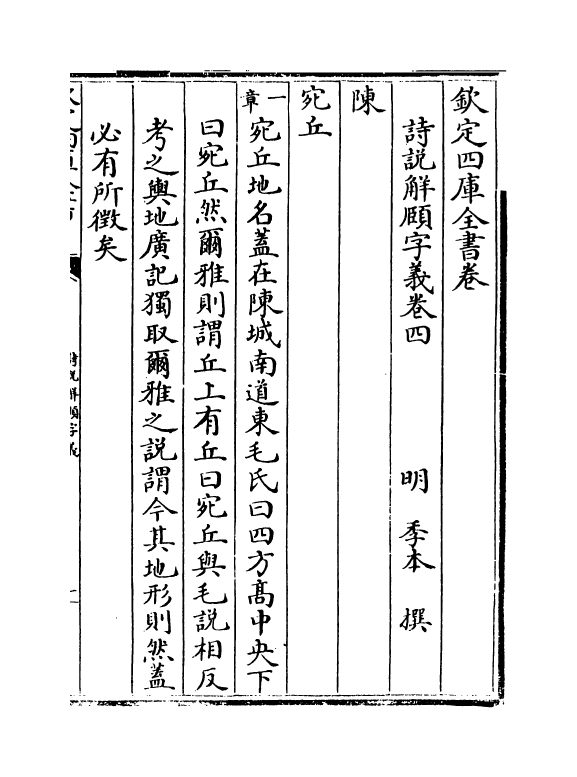 欽定四庫全書卷
詩説解頤字義卷四
明 季本 撰
陳
宛丘
一章
宛丘地名蓋在陳城南道東毛氏曰四方髙中央下
曰宛丘然爾雅則謂丘上有丘曰宛丘與毛説相反
考之輿地廣記獨取爾雅之説謂今其地形則然蓋
必有所徵矣
詩説解頤字義